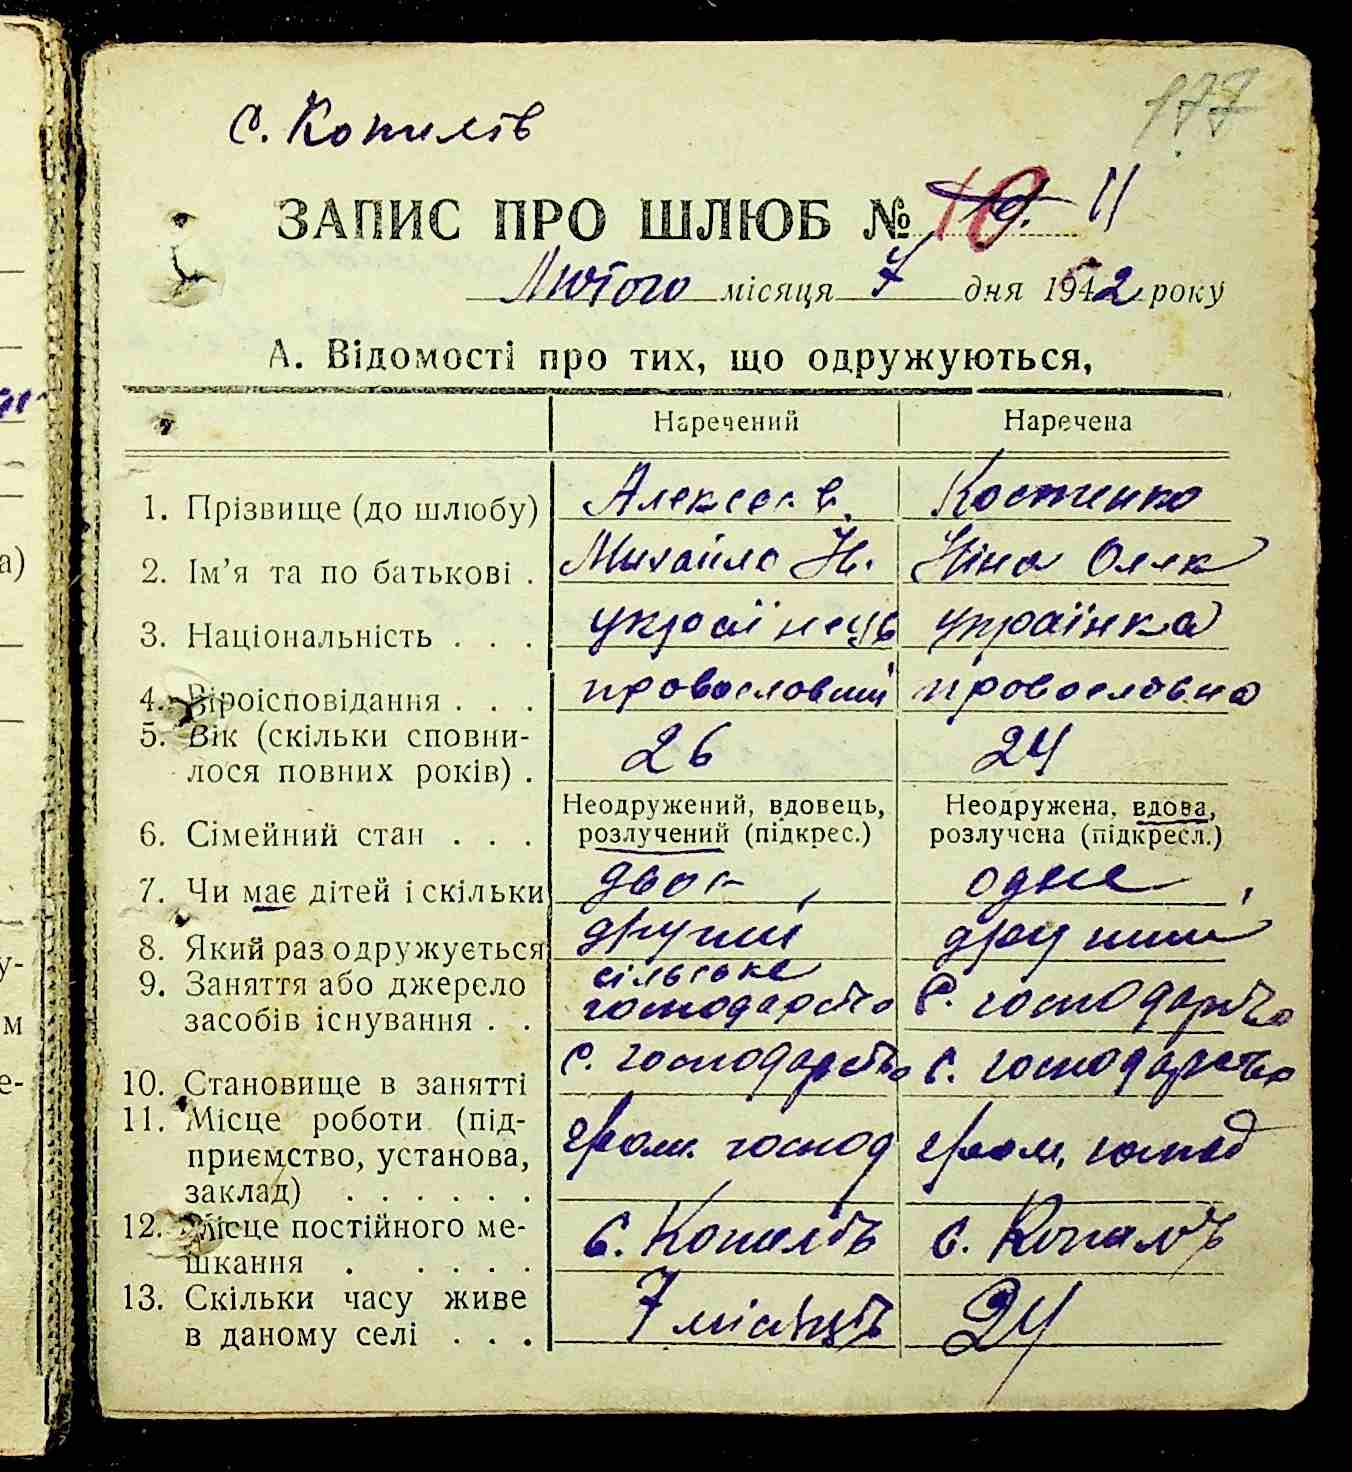 177
с. Копилів
ЗАПИС ПРО ШЛЮБ № 10 11
Лютого місяця 7 дня 1942 року
А. Відомості про тих, що одружуються,
Наречений Наречена
1. Прізвище (до шлюбу) Алексєєв. Костенко
2. Ім’я та по батькові . Михайло Н. Ніна Олек
3. Національність . . . українець українка
4. Віроісповідання . . . провославний провославна
5. Вік (скільки сповни-
лося повних років) . 26 24
Неодружений, вдовець, Неодружена, вдова,
6. Сімейний стан . . . розлучений (підкрес.) розлучена (підкресл.)
7. Чи має дітей і скільки двоє, одне,
8. Який раз одружується другий другий
9. Заняття або джерело сільське
засобів існування . . господарство С. господарство
10. Становище в занятті С. господарство С. господарство
11. Місце роботи (під-
приємство, установа, гром. господ гром. господ
заклад) . . . . . .
12. Місце постійного ме- с. Копилів с. Копилів
шкання . . . . .
13. Скільки часу живе
в даному селі . . . 7 місяців 24
а)
у-
м
е-